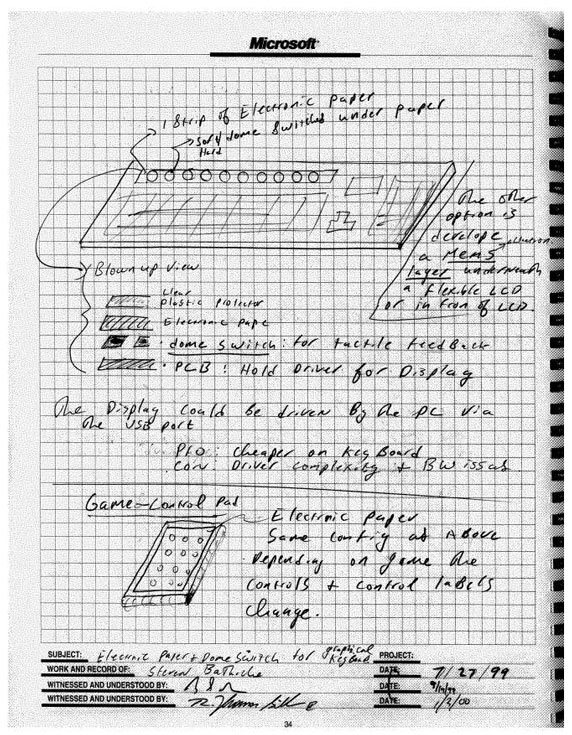 Microsoft
1 Strip of Electronic paper
dome switches under paper
The other
option is
develope
a Mems
layer underneath
a flexible LCD
or in fron of LCD.
Blown up View
Clear
plastic protector
Electronic Pape
dome switch: for tactile feedback
PCB: Hold Driver for Display
The Display could be driven By the PC Via
the USB port
Pro: cheaper on Key Board
Con: Driver complexity + BW issues
Game-Control Pad
Electronic Paper
Same config as Above
Depending on game the
controls + control labels
change.
SUBJECT: Electronic Paper + Dome Switch for graphical Keyboard PROJECT:
WORK AND RECORD OF: Steven Bathiche DATE: 7/27/99
WITNESSED AND UNDERSTOOD BY: DATE:
WITNESSED AND UNDERSTOOD BY: DATE: 1/3/00
34